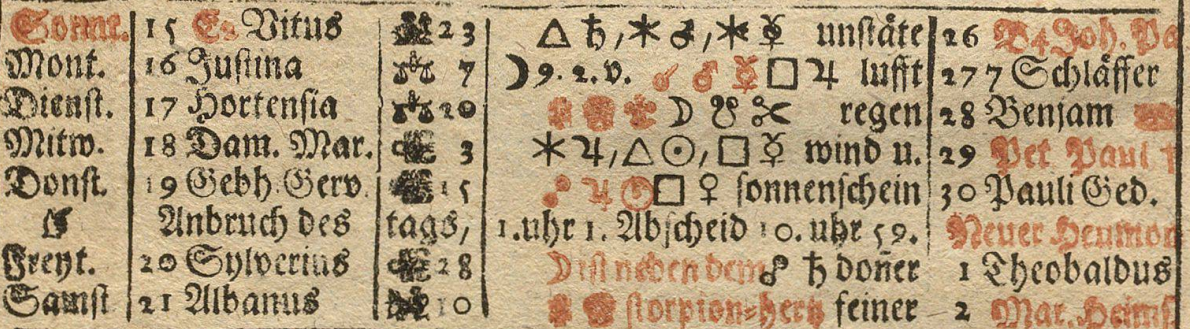 Sonnt. 15 E2 Vitus 23 △ ♄, ⚹ ♂, ⚹ ☿ unstäte 26 B4 Joh. Pa
Mont. 16 Justina 7 ☽ 9. 2. v. ☌ ♂ ☿ □ ♃ lufft 27 7 Schläffer
Dienst. 17 Hortensia 20 ☽ ☋ regen 28 Benjam
Mitw. 18 Dam. Mar. 3 ⚹ ♃, △ ☉, □ ☿ wind u. 29 Pet Paul
Donst. 19 Gebh. Gerv. 15 ☍ ♃ ☉ □ ♀ sonnenschein 30 Pauli Ged.
Anbruch des tags, 1. uhr 1. Abscheid 10. uhr 59. Neuer Heumon
Freyt. 20 Sylverius 28 ☽ ist neben dem ☍ ♄ doñer 1 Theobaldus
Samst 21 Albanus 10 storpion-hertz feiner 2 Mar. Heims